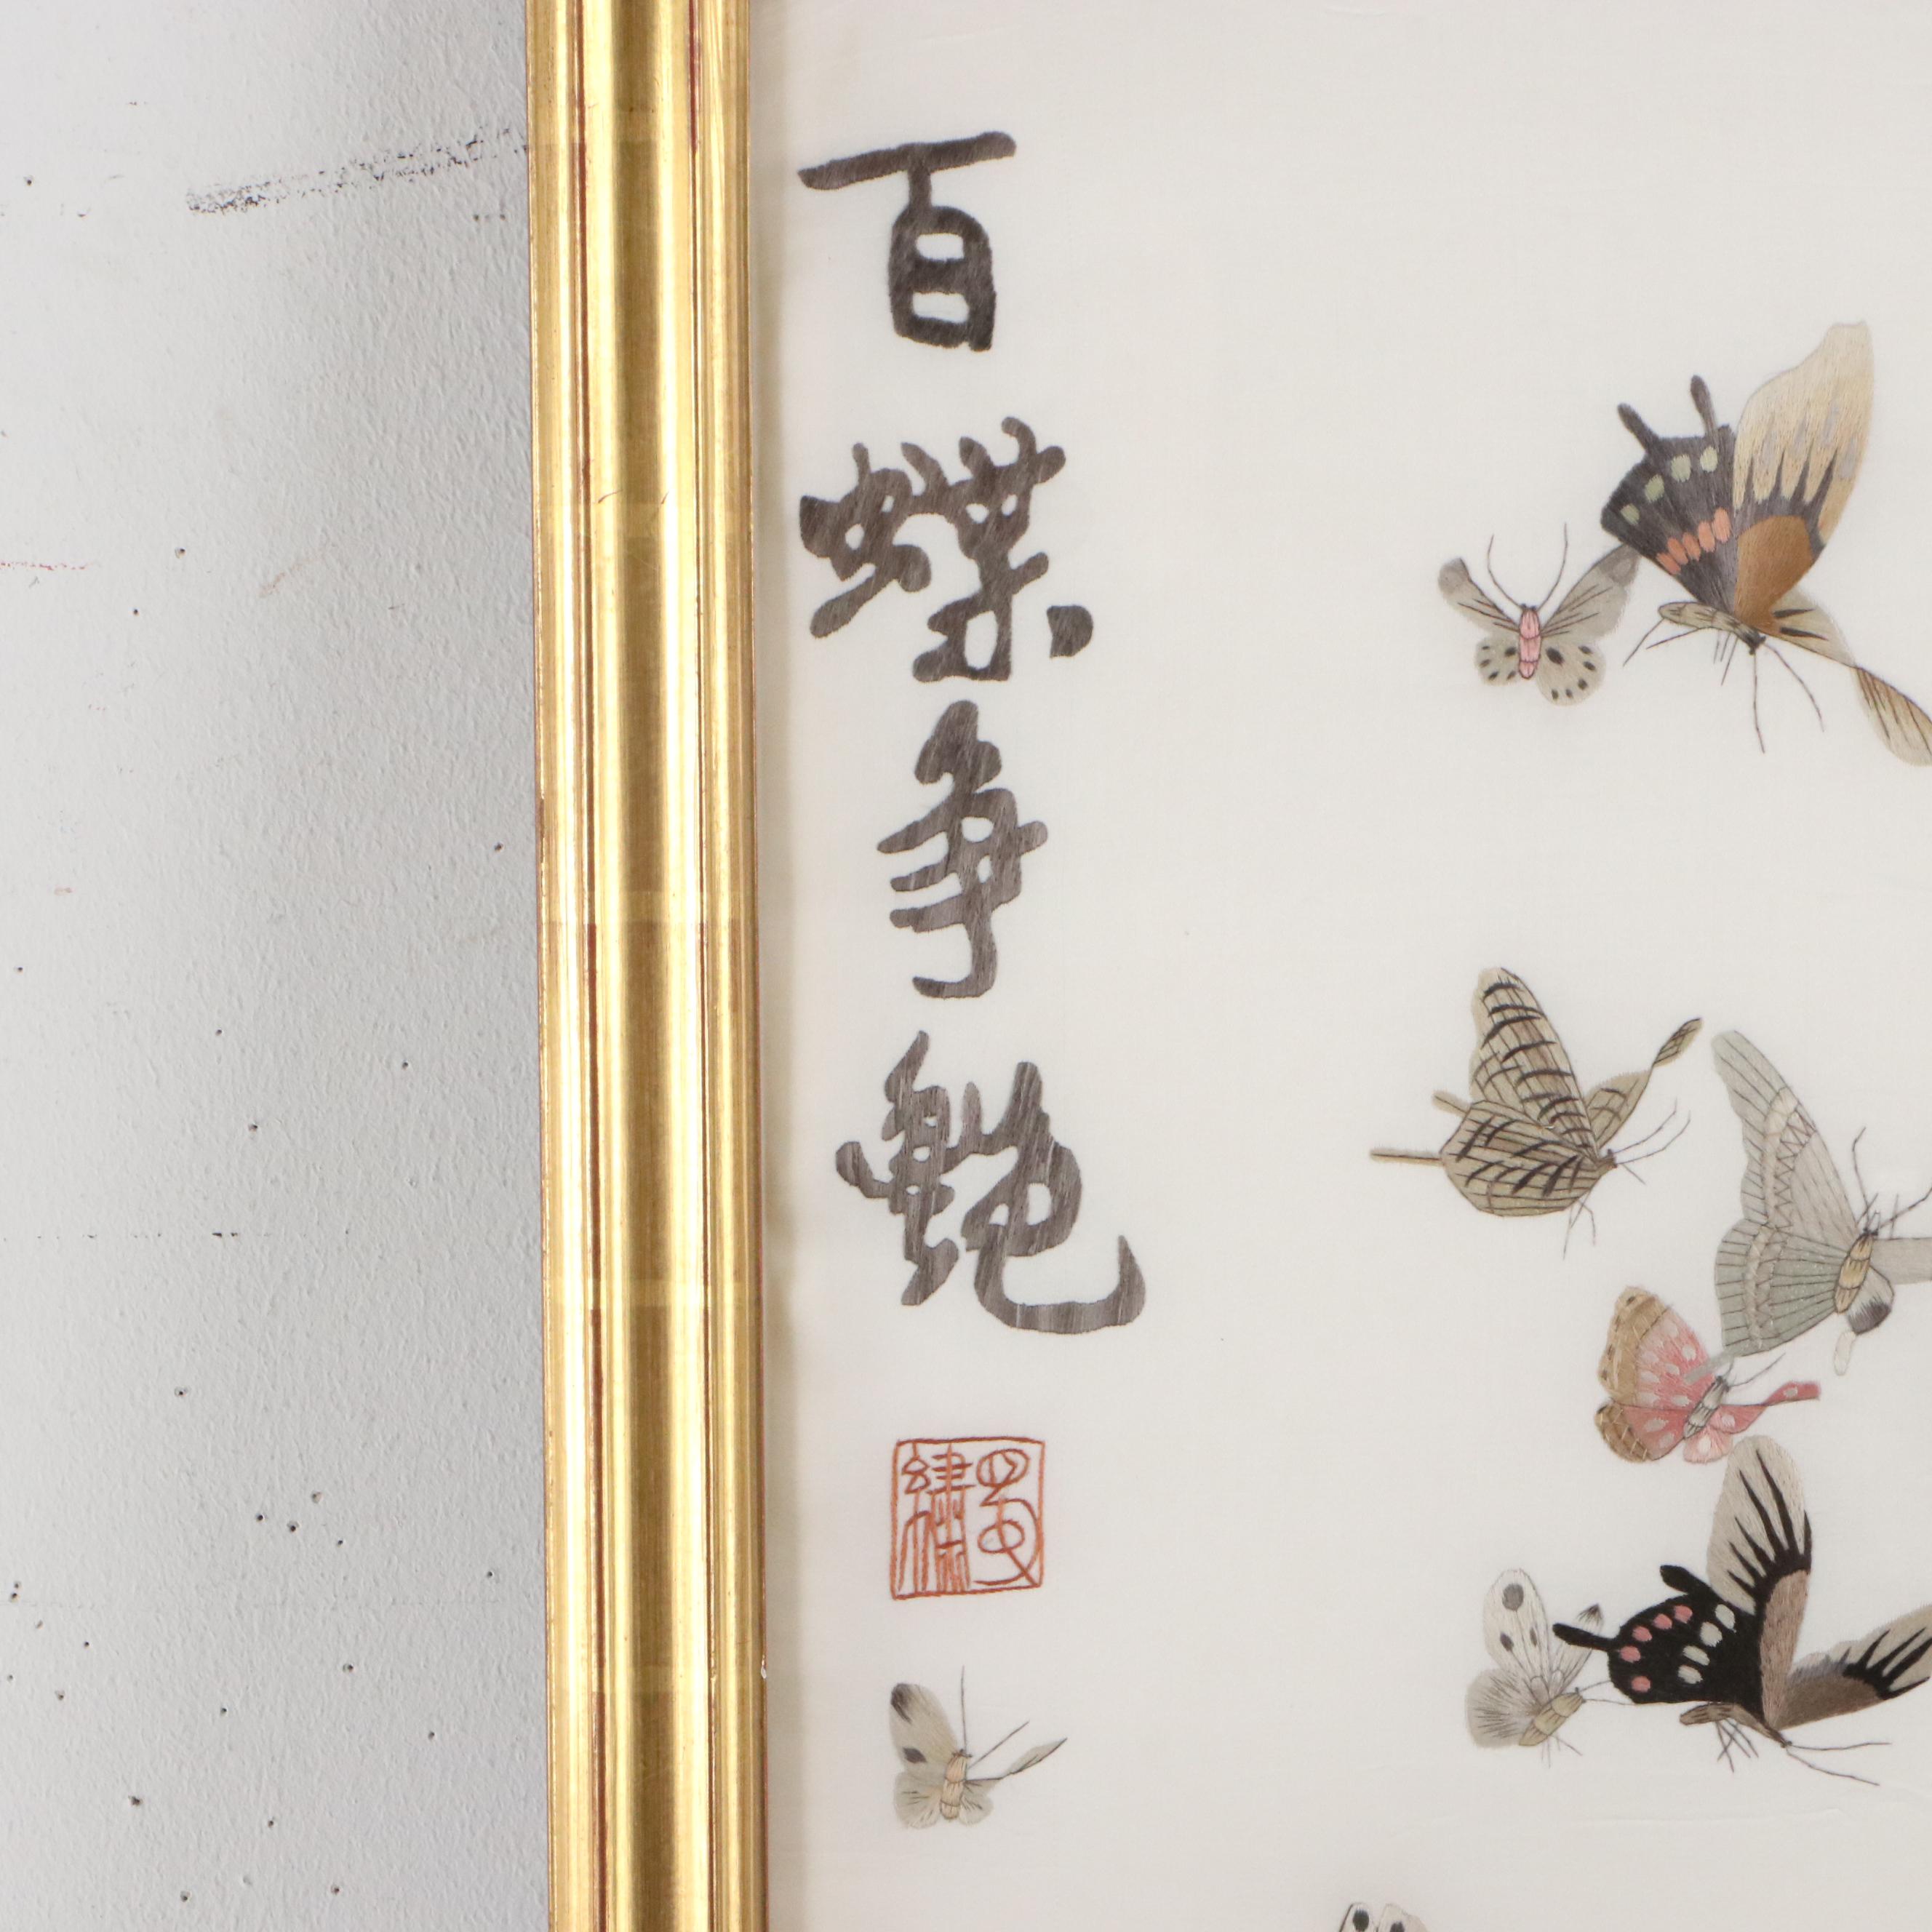 百蝶争艳
蜀繡